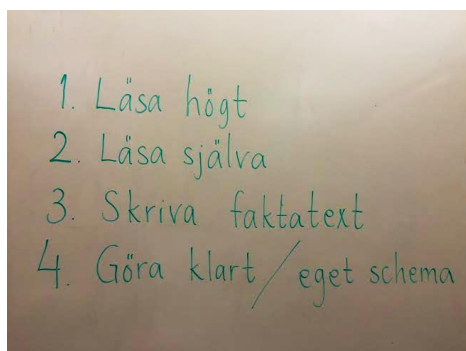 1. Läsa högt
2. Läsa själva
3. Skriva faktatext
4. Göra klart / eget schema